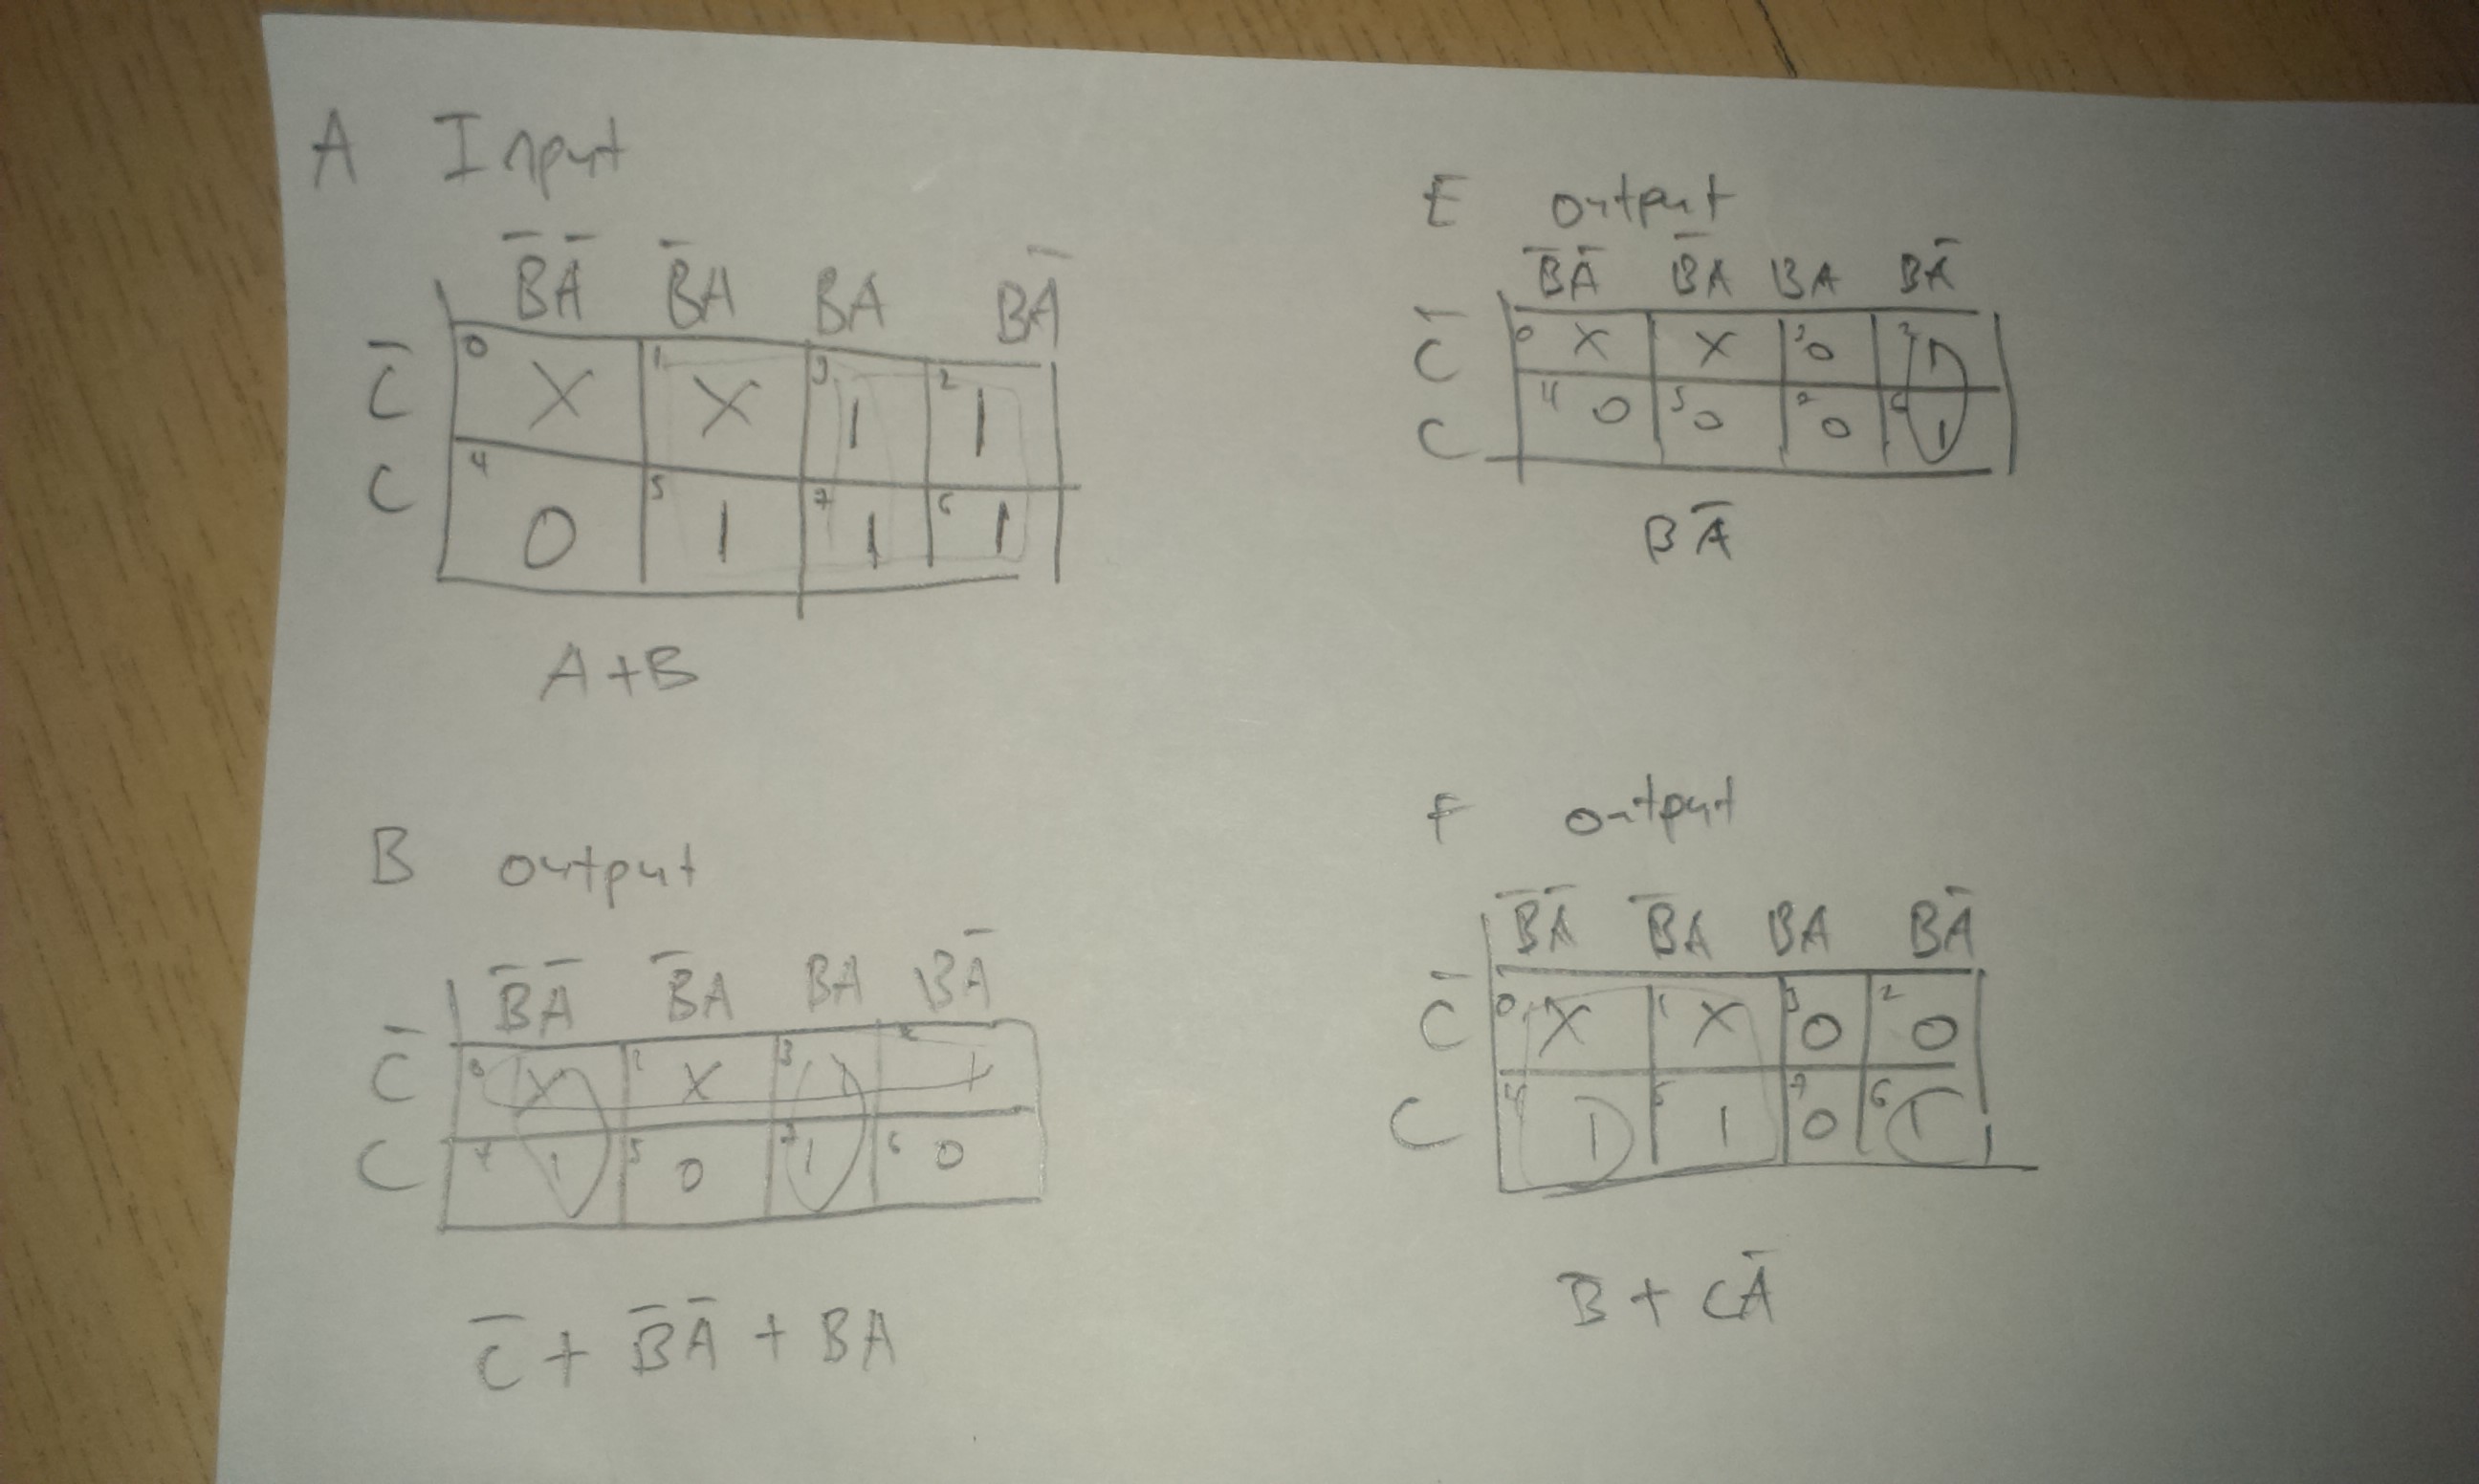 A Input
B̅A̅ B̅A BA BA̅
C̅ 0 X 1 X 3 1 2 1
C 4 0 5 1 7 1 6 1
A+B
B output
B̅A̅ B̅A BA BA̅
C̅ 0 X 1 X 3 1 2 1
C 4 1 5 0 7 1 6 0
C̅ + B̅A̅ + BA
E output
B̅A̅ B̅A BA BA̅
C̅ 0 X 1 X 3 0 2 1
C 4 0 5 0 7 0 6 1
BA̅
F output
B̅A̅ B̅A BA BA̅
C̅ 0 X 1 X 3 0 2 0
C 4 1 5 1 7 0 6 1
B̅ + CA̅